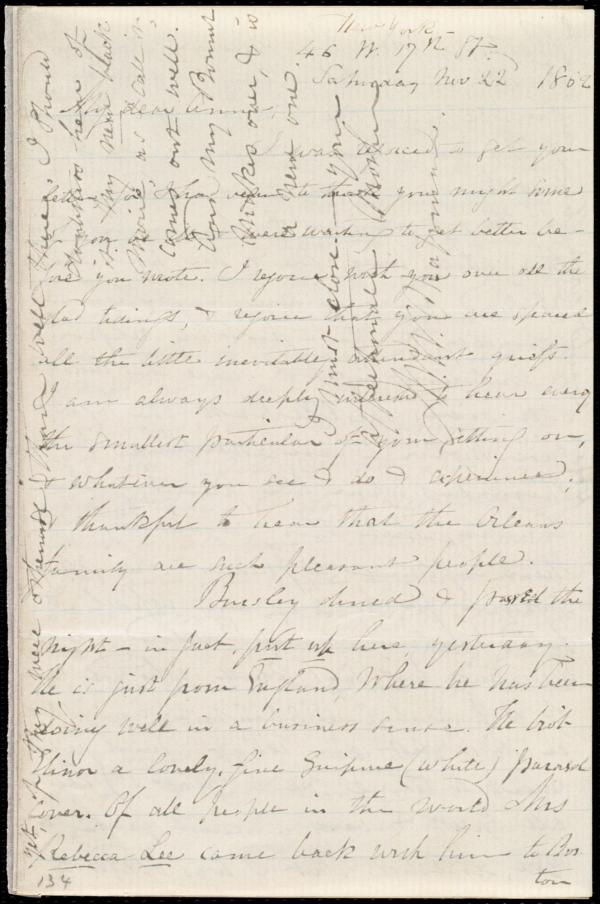 New York
46 W. 17th St.
Saturday Nov 22 1862
My dear Anne,
I was rejoiced to get your
letter,
you were waiting to get better be-
fore you wrote. I rejoice with you over all the
glad tidings, & rejoice that you are spared
all the little inevitable attendant griefs.
I am always deeply interested to hear every
the smallest particular of your getting on,
& whatever you see & do & experience;
thankful to hear that the Orleans
family are such pleasant people.
Buesley dined & passed the
night – in fact, put up here, yesterday.
He is just from England, where he has been
doing well in a business sense. He brot
Elinor a lovely, fine Guipure (white) parasol
cover. Of all people in the world Mrs
Rebecca Lee came back with him to Bos-
134
ton
well there, I should
somehow hear of
it. My new black
as I call it
comes out well.
And my Bonnet
makes over, & is
a new one.
I must close. Your
affectionate